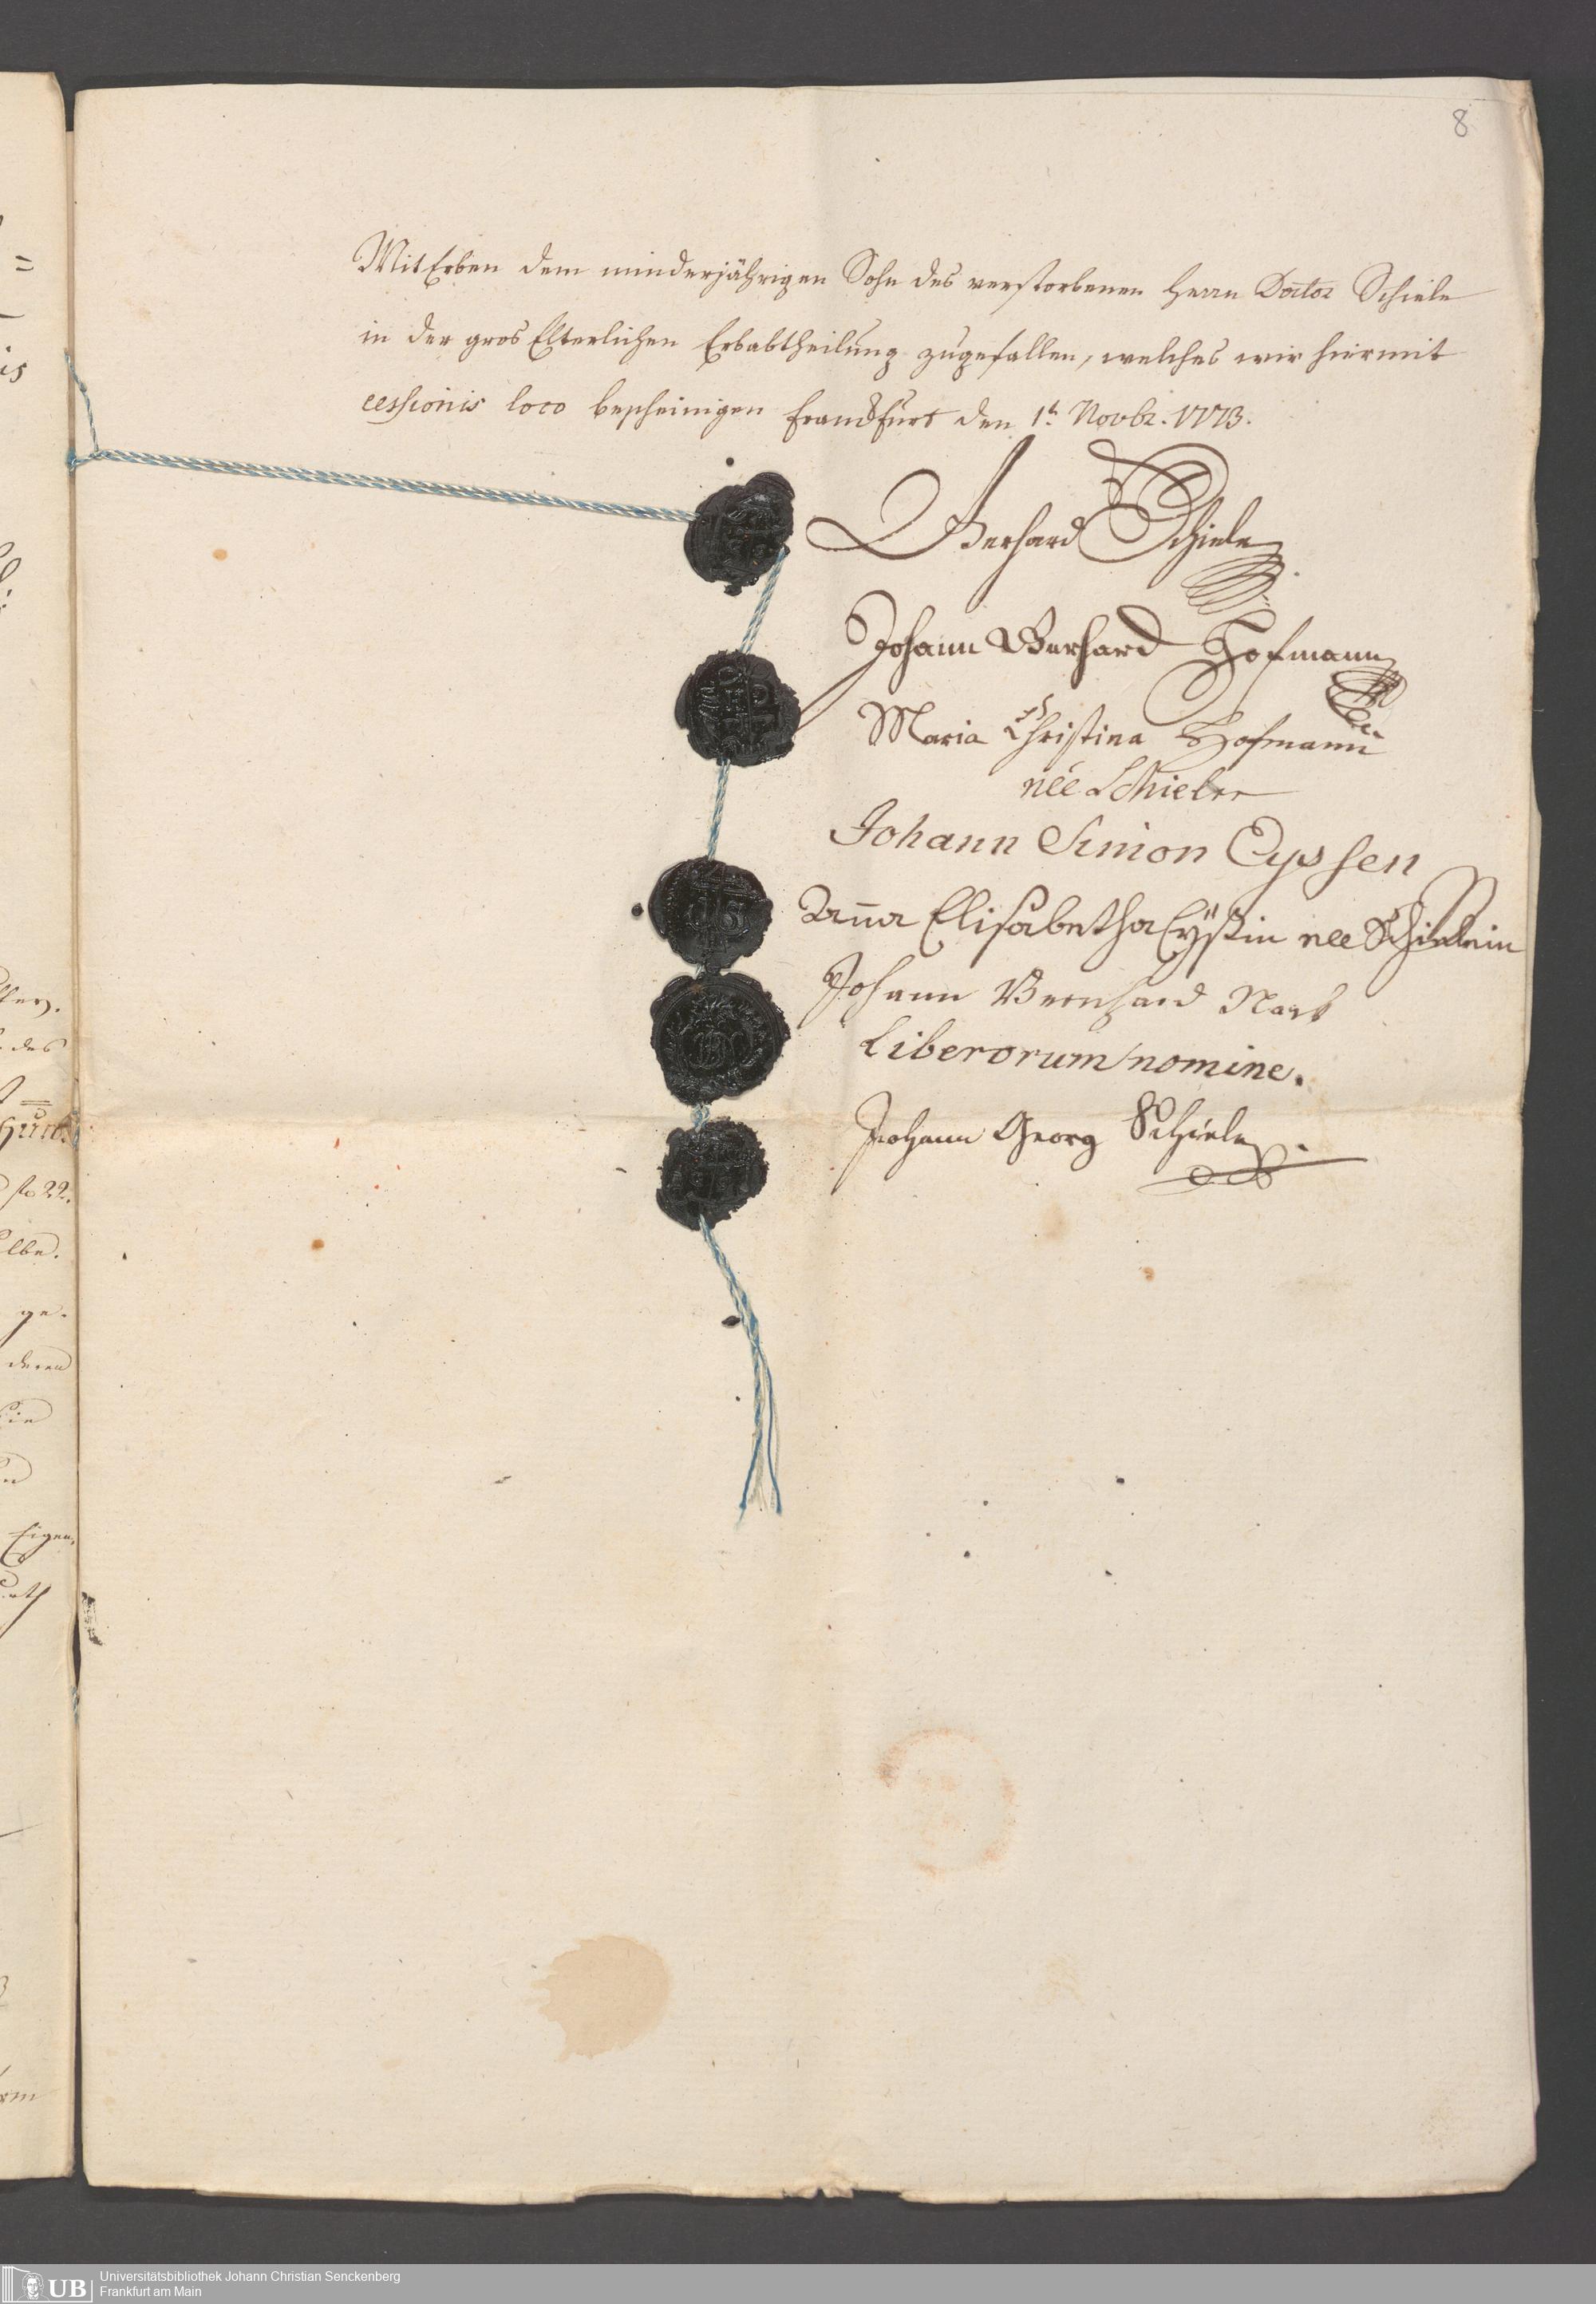 8
MitErben dem minderjährigen Sohn des verstorbenen Herrn Doctor Schiele
in der gros Elterlichen Erbabtheilung zugefallen, welches wir hiermit
cessionis loco bescheinigen Franckfurt den 1t. Novbr. 1773.
Gerhard Schiele
Johann Gerhard Hofmann
Maria Christina Hofmann
née Schieler
Johann Simon Eyssen
Anna Elisabetha Eÿßin nee Schielein
Johann Bernhard
Liberorum nomine.
Johann Georg Schiele
des
22.
ge.
deren
Eigen
UB
Universitätsbibliothek Johann Christian Senckenberg
Frankfurt am Main